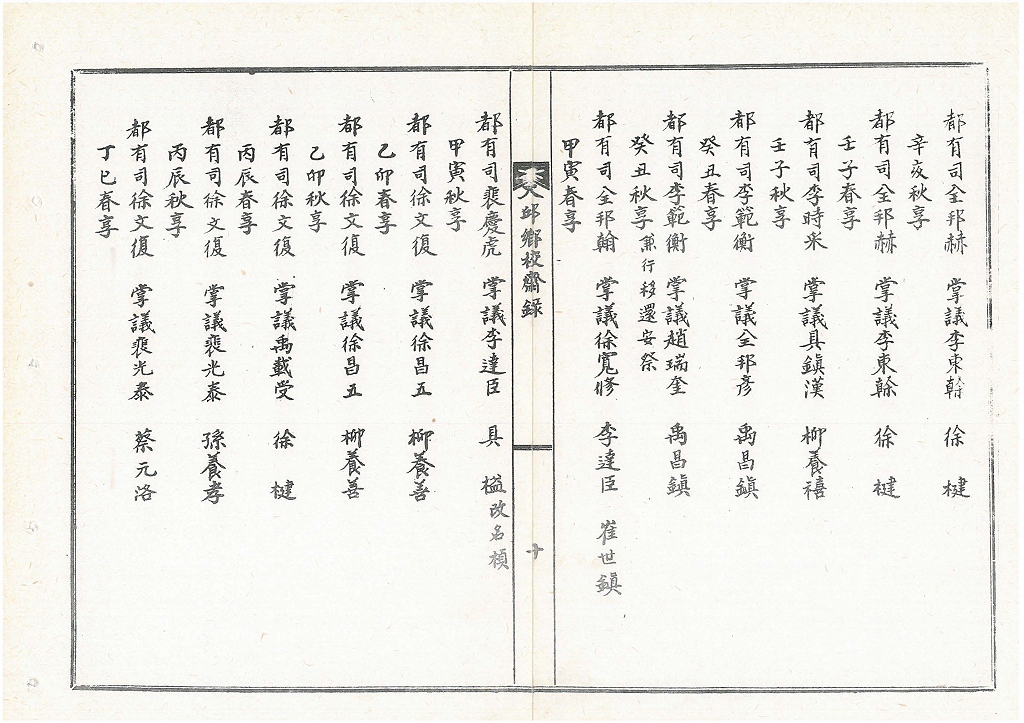 都有司全邦赫 掌議李東榦 徐楗
辛亥秋享
都有司全邦赫 掌議李東榦 徐楗
壬子春享
都有司李時采 掌議具鎭漢 柳養禧
壬子秋享
都有司李範衡 掌議全邦彦 禹昌鎭
癸丑春享
都有司李範衡 掌議趙瑞奎 禹昌鎭
癸丑秋享兼行移還安祭
都有司全邦翰 掌議徐寬修 李達臣 崔世鎭
甲寅春享
八邱鄉校齋錄 十
都有司裴慶虎 掌議李達臣 具楹改名禎
甲寅秋享
都有司徐文復 掌議徐昌五 柳養善
乙卯春享
都有司徐文復 掌議徐昌五 柳養善
乙卯秋享
都有司徐文復 掌議禹載受 徐楗
丙辰春享
都有司徐文復 掌議裴光泰 孫養孝
丙辰秋享
都有司徐文復 掌議裴光泰 蔡元洛
丁巳春享